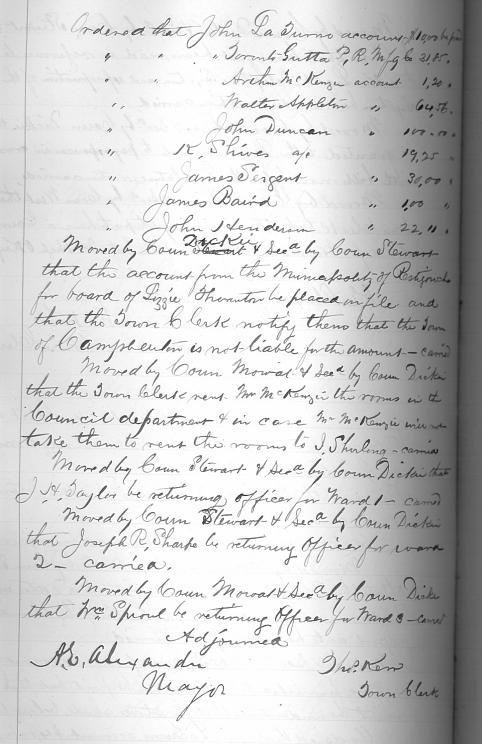 Ordered that John La Turno account $10.00 be paid
" " " Toronto Gutta P, R, Mfg Co 31,85. "
" " Arthur McKenzie account 1,20. "
" Walter Appleton " 64,56. "
" John Duncan " 100.00 "
" K. Shives a/c " 19,25 "
" James Sergent " 30,00 "
" James Baird " 1,00 "
" John Henderson " 22,11. "
Moved by Coun Dickie & Secd by Coun Stewart
that the account from the Municipality of Restigouche
for board of Lizzie Thornton be placed on file and
that the Town Clerk notify them that the Town
of Campbellton is not liable for the amount – carried
Moved by Coun Mowat & Secd by Coun Dickie
that the Town Clerk rent Mr McKenzie the rooms in the
Council department & in case Mr McKenzie will not
take them to rent the rooms to J, Shurling – carried
Moved by Coun Stewart & Secd by Coun Dickie that
J. H. Taylor be returning officer for Ward 1 – carried
Moved by Coun Stewart & Secd by Coun Dickie
that Joseph R, Sharpe be returning Officer for ward
2 – carried.
Moved by Coun Mowat & Secd by Coun Dickie
that Wm Sproul be returning Officer for Ward 3 – carried
Adjourned
A. E. Alexander
Thos. Kerr
Mayor
Town Clerk